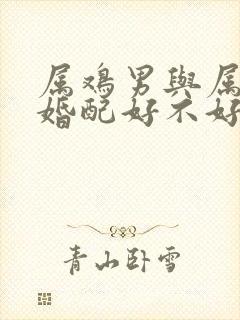 属鸡男與属
婚配好不好
青山卧雪